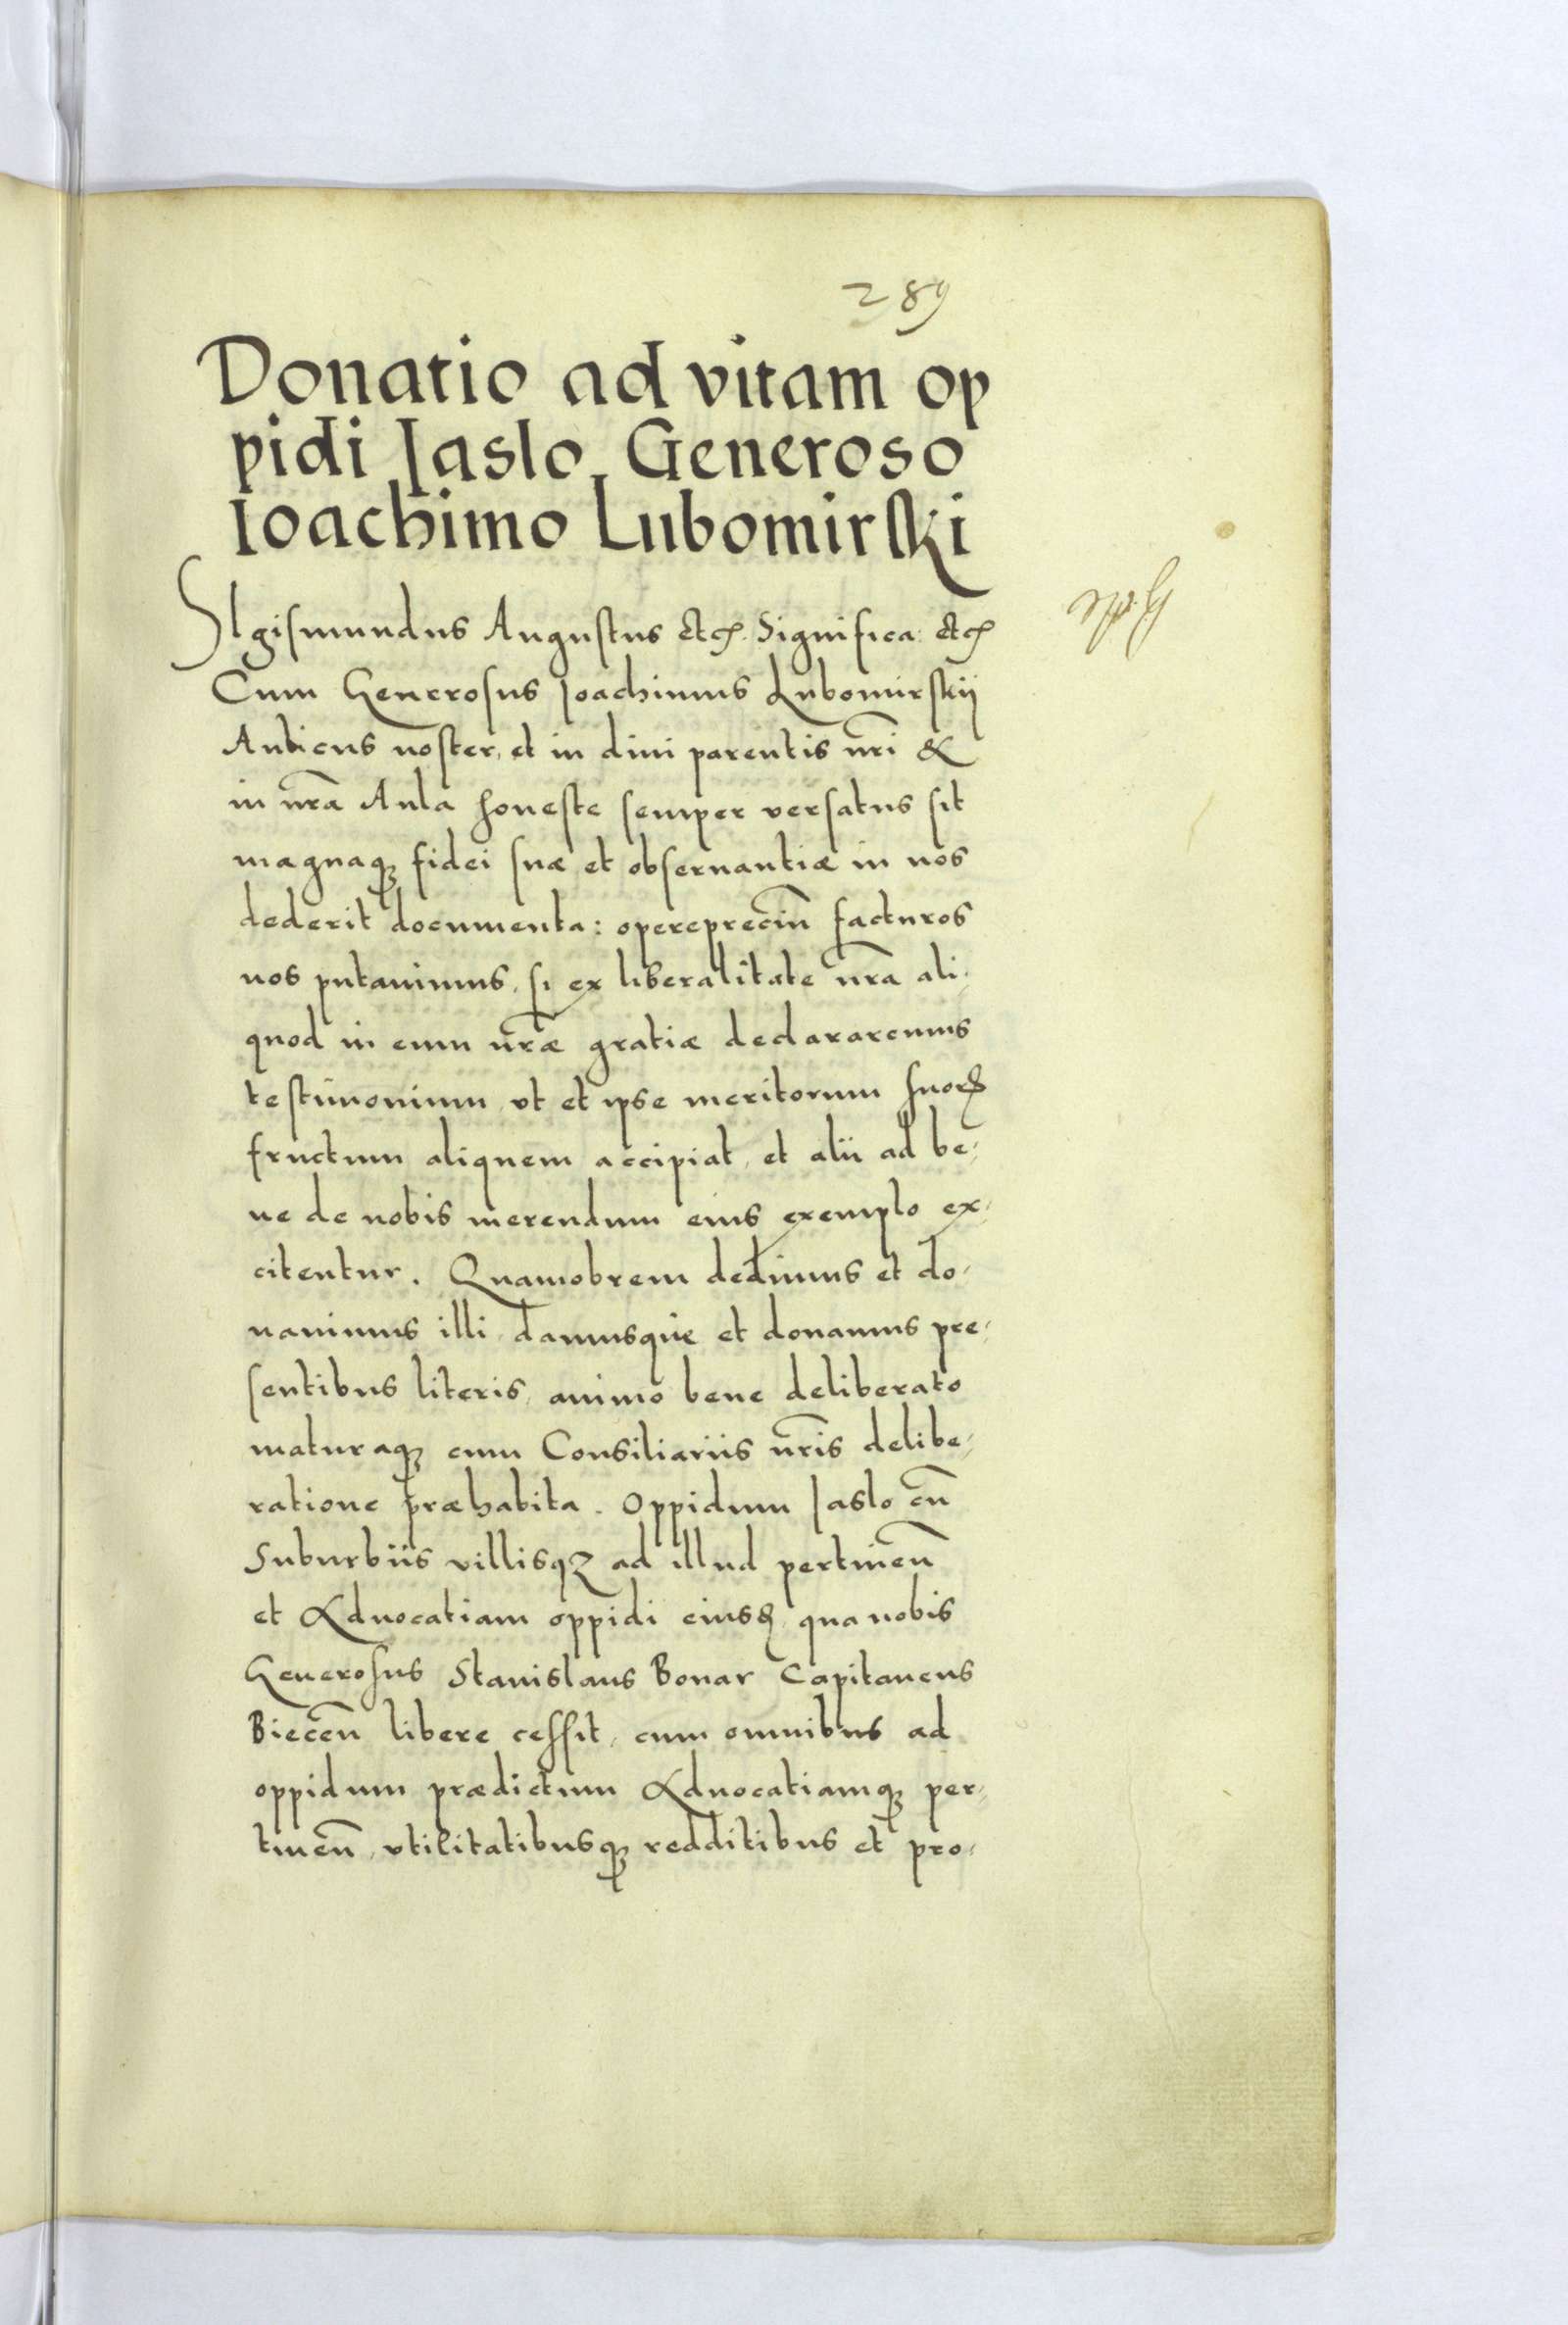 289
Donatio ad vitam op
pidi Jaslo Generoso
Ioachimo Lubomirski
SIgismundus Augustus etc. Significa: etc
Cum Generosus Joachimus Lubomirskij
Aulicus noster, et in diui parentis nr̃i &
in nr̃a Aula honeste semper versatus sit
magnaqʒ fidei suæ et obseruantiæ in nos
dederit documenta: opereprecim̃ facturos
nos putauimus, si ex liberalitate nr̃a ali-
quod in eum nr̃æ gratiæ declararemus
testimonium, vt et ipse meritorum suorꝝ
fructum aliquem accipiat, et alii ad be-
ne de nobis merendum eius exemplo ex-
citentur. Quamobrem dedimus et do-
nauimus illi, damusque et donamus pre-
sentibus literis, animo bene deliberato
maturaqʒ cum Consiliariis nr̃is delibe-
ratione præhabita. Oppidum Jaslo cũ
Suburbiis villisqʒ ad illud pertineñ
et Aduocatiam oppidi eiusꝺ, qua nobis
Generosus Stanislaus Bonar Capitaneus
Bieceñ libere cessit, cum omnibus ad
oppidum prædictum Aduocatiamqʒ per-
tineñ, vtilitatibusqʒ redditibus et pro-